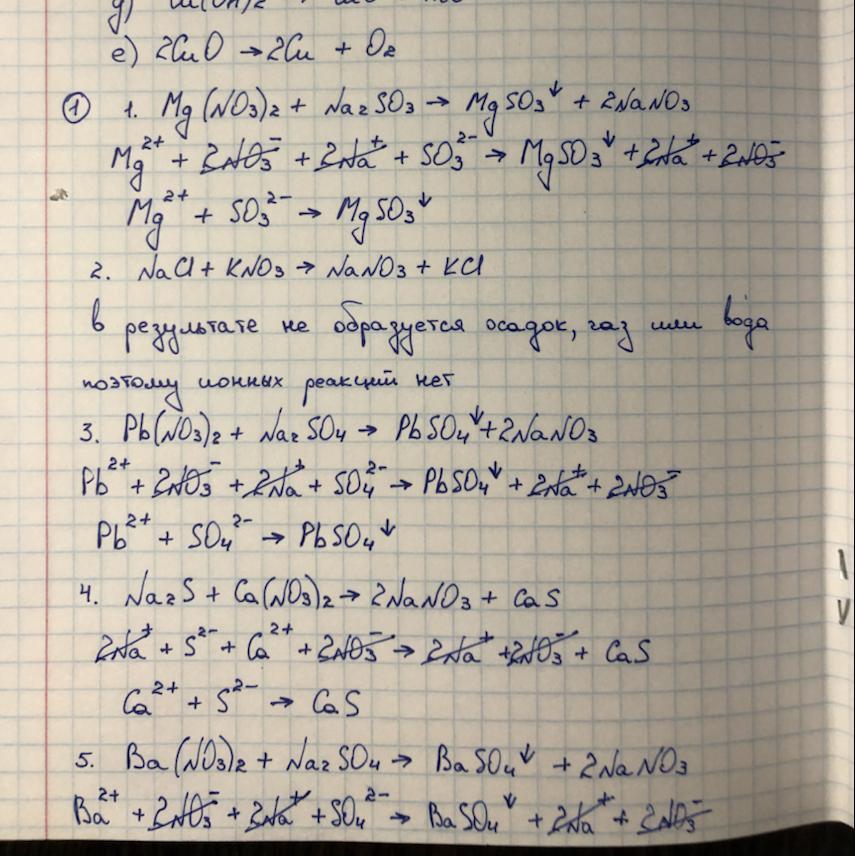 е) 2CuO → 2Cu + O₂
① 1. Mg(NO₃)₂ + Na₂SO₃ → MgSO₃↓ + 2NaNO₃
Mg²⁺ + 2NO₃⁻ + 2Na⁺ + SO₃²⁻ → MgSO₃↓ + 2Na⁺ + 2NO₃⁻
Mg²⁺ + SO₃²⁻ → MgSO₃↓
2. NaCl + KNO₃ → NaNO₃ + KCl
в результате не образуется осадок, газ или вода
поэтому ионных реакций нет
3. Pb(NO₃)₂ + Na₂SO₄ → PbSO₄↓ + 2NaNO₃
Pb²⁺ + 2NO₃⁻ + 2Na⁺ + SO₄²⁻ → PbSO₄↓ + 2Na⁺ + 2NO₃⁻
Pb²⁺ + SO₄²⁻ → PbSO₄↓
4. Na₂S + Ca(NO₃)₂ → 2NaNO₃ + CaS
2Na⁺ + S²⁻ + Ca²⁺ + 2NO₃⁻ → 2Na⁺ + 2NO₃⁻ + CaS
Ca²⁺ + S²⁻ → CaS
5. Ba(NO₃)₂ + Na₂SO₄ → BaSO₄↓ + 2NaNO₃
Ba²⁺ + 2NO₃⁻ + 2Na⁺ + SO₄²⁻ → BaSO₄↓ + 2Na⁺ + 2NO₃⁻